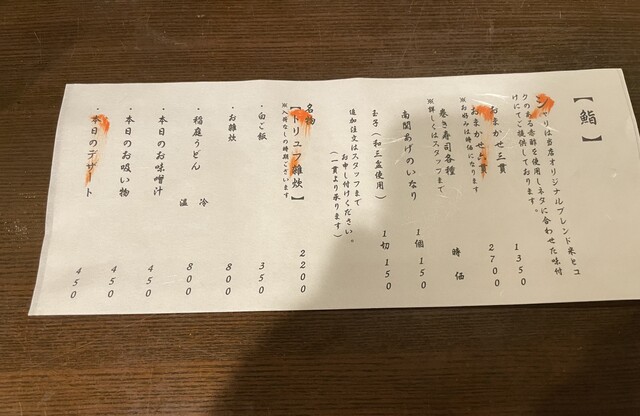 【鮨】
シャリは当店オリジナルブレンド米とコ
クのある赤酢を使用しネタに合わせた味付
けにてご提供しております。
おまかせ三貫 1350
おまかせ六貫 2700
※お好みは時価になります
巻き寿司各種 時価
※詳しくはスタッフまで
南関あげのいなり 1個 150
玉子(和三盆使用) 1切 150
追加注文はスタッフまで
お申し付けください。
(一貫より承ります)
名物
【トリュフ雑炊】 2200
※入荷なしの時期ございます
・白ご飯 350
・お雑炊 800
・稲庭うどん 冷 温 800
・本日のお味噌汁 450
・本日のお吸い物 450
・本日のデザート 450